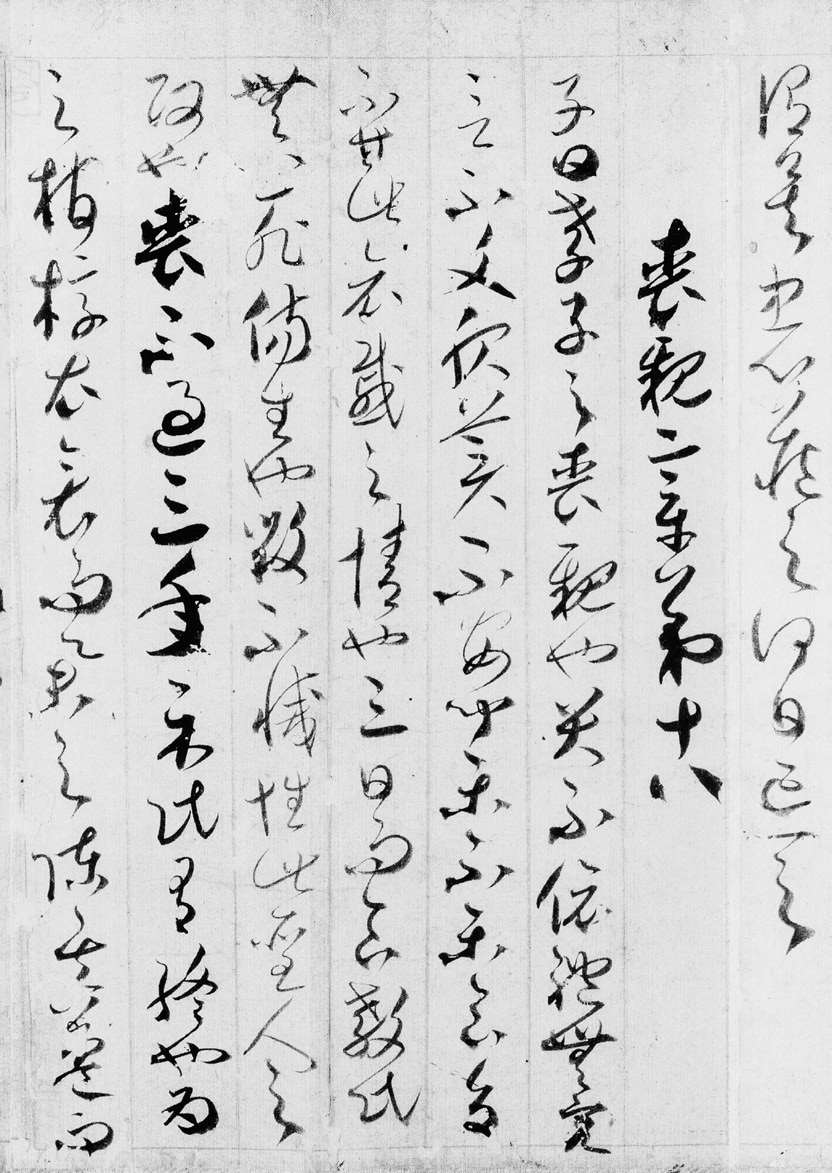 謂矣忠心藏之何日忘之
喪親章第十八
子曰孝子之喪親也哭不依禮無容
言不文服美不安聞樂不樂食旨
不甘此哀戚之情也三日而食教民
無以死傷生也毀不滅性此聖人之
政也喪不過三年示民有終也為
之棺椁衣衾而舉之陳其簠簋而